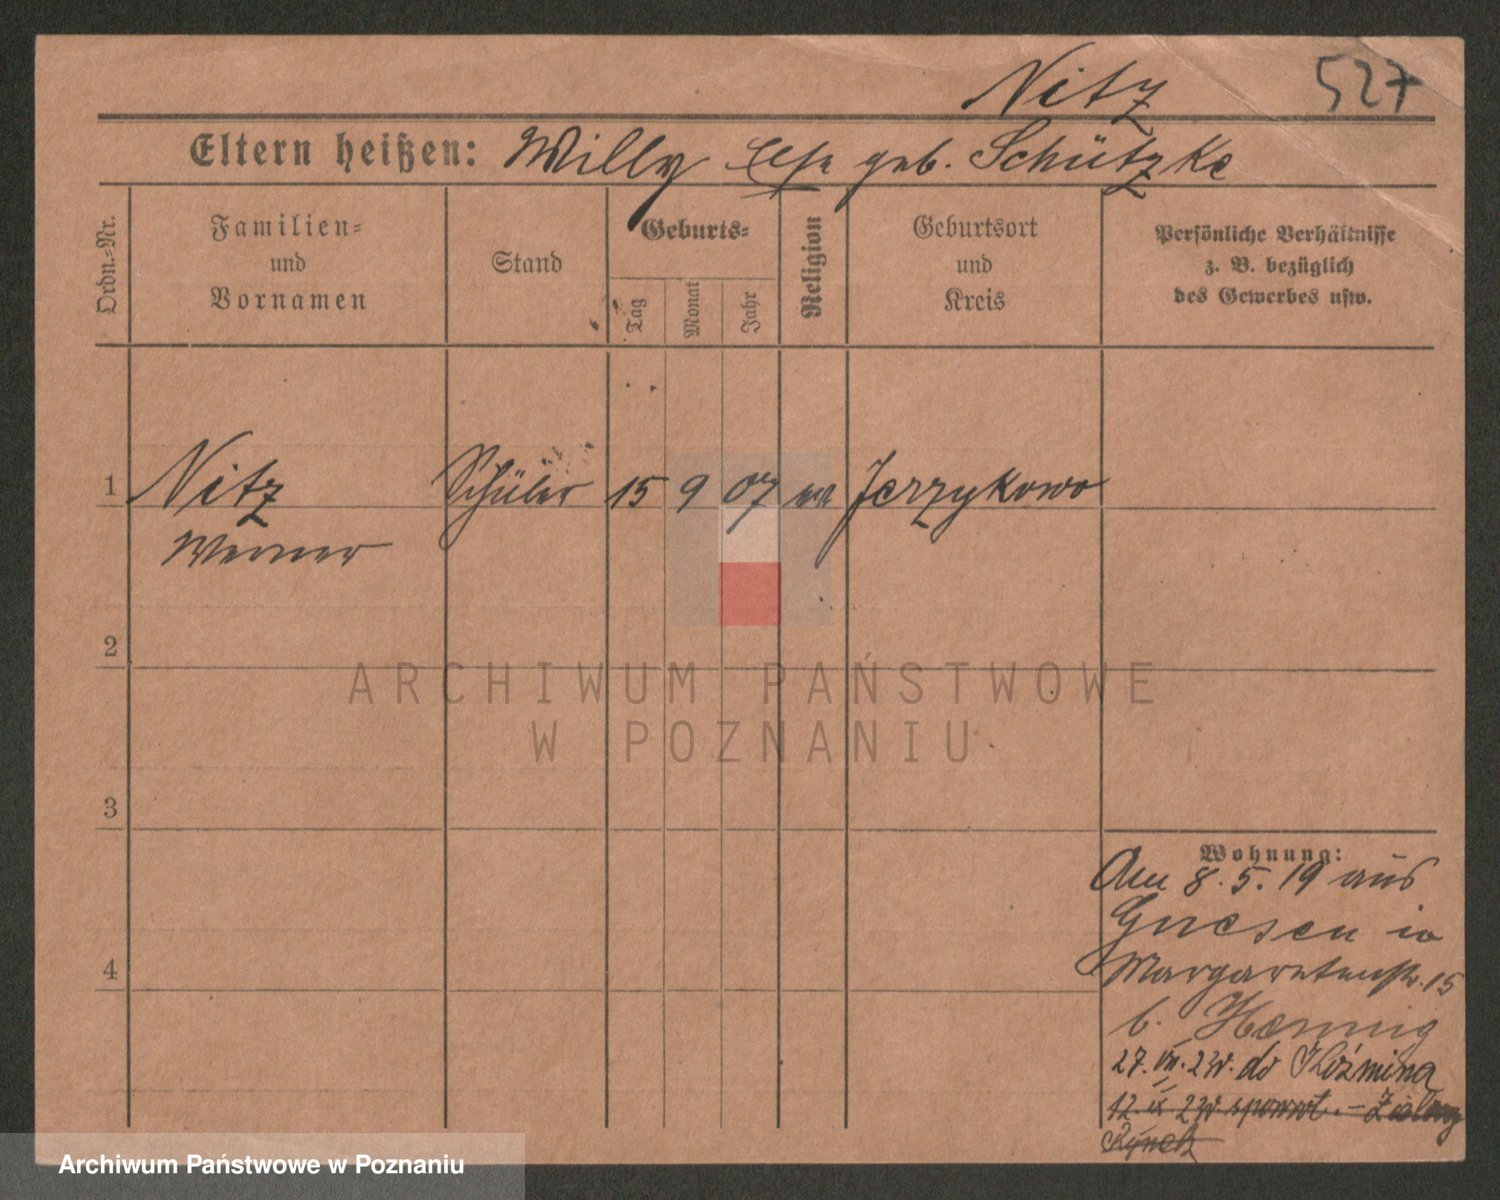 Nitz 527
Eltern heißen: Willy Else geb. Schützke
Ordn.-Nr.
Familien-
und
Vornamen
Stand
Geburts-
Tag
Monat
Jahr
Religion
Geburtsort
und
Kreis
Persönliche Verhältnisse
z. B. bezüglich
des Gewerbes usw.
1 Nitz Schüler 15 9 07 Jerzykowo
Werner
2
3
4
Wohnung:
Am 8.5.19 aus
Gnesen in
Margaretenstr. 15
b. Hennig
27. VII. 23r. do Koźmina
12 IX 23r spowrot. -
Rynek
ARCHIWUM PAŃSTWOWE
W POZNANIU
Archiwum Państwowe w Poznaniu